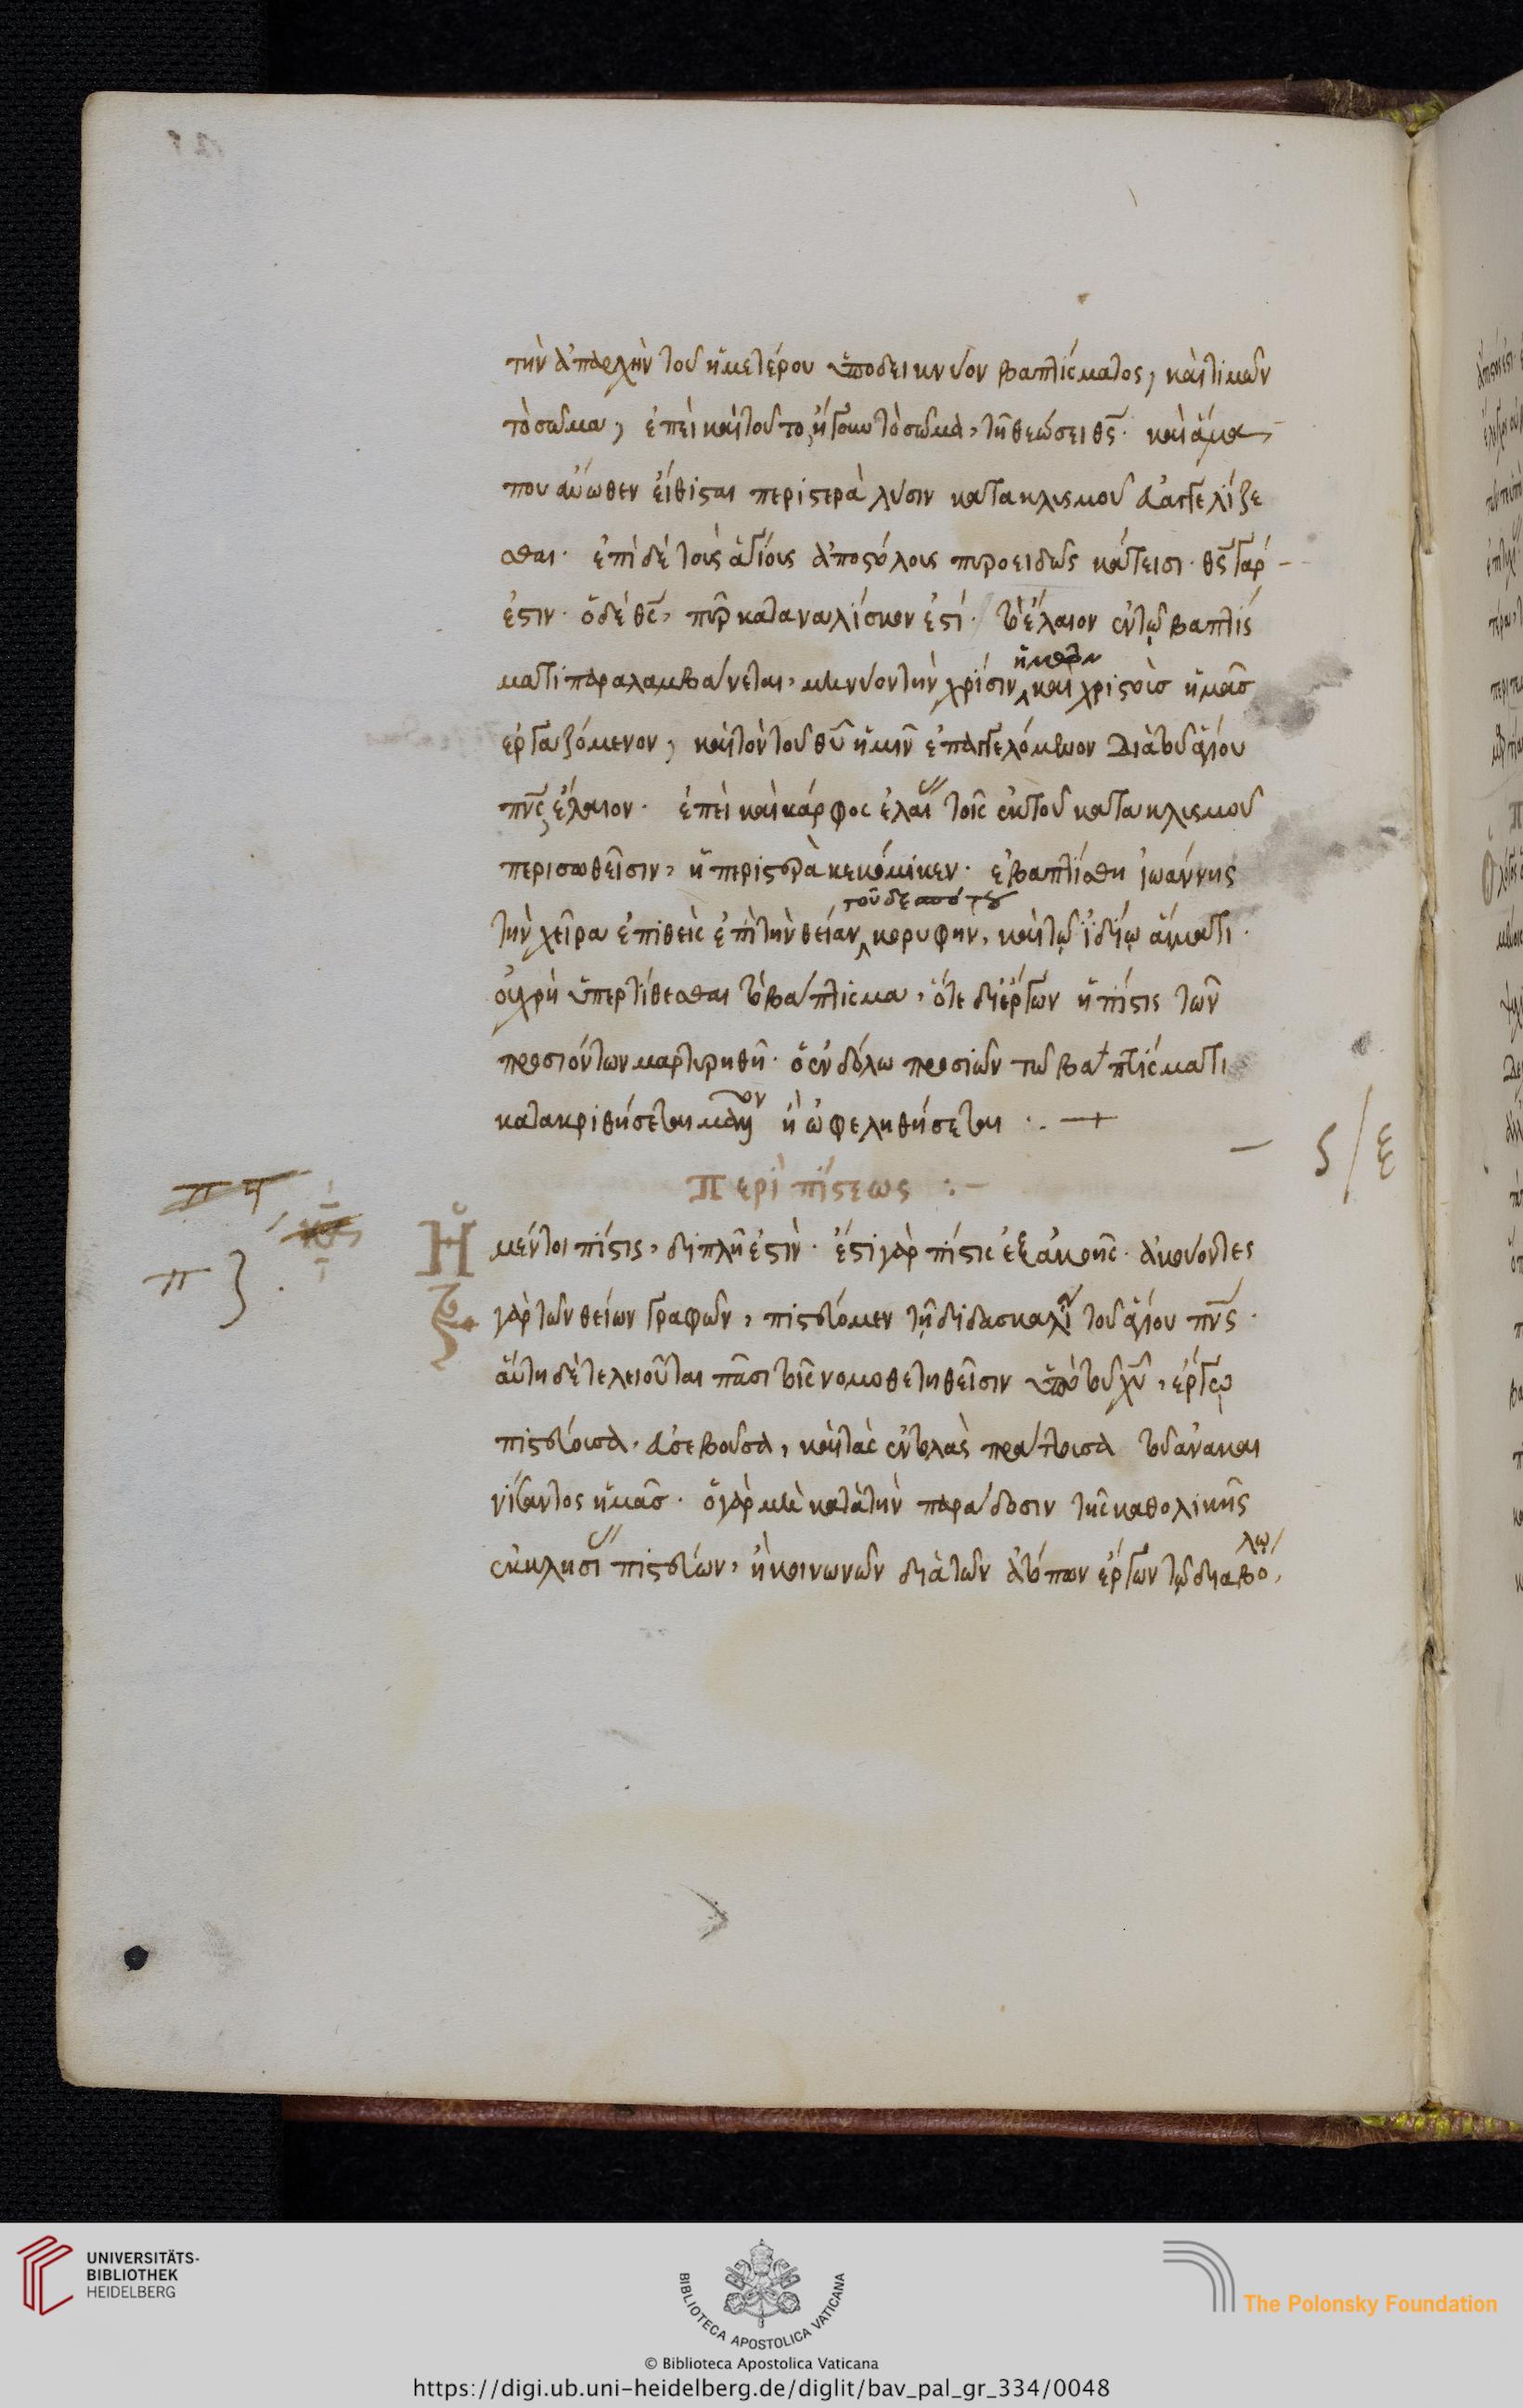 τὴν ἀπαρχὴν τοῦ ἡμετέρου ὑποδεικνύον βαπτίσματος, καὶ τιμῶν
τὸ σῶμα, ἐπεὶ καὶ τοῦτο ἤγουν τὸ σῶμα, τῆ θεώσει θς̅. καὶ ἅμα
που ἄνωθεν εἴθισται περιστερὰ λύσιν κατακλυσμοῦ εὐαγγελίζε
σθαι. ἐπὶ δὲ τοὺς ἁγίους ἀποστόλους πυροειδῶς κάτεισι. θς̅ γάρ
ἐστιν. ὁ δὲ θς̅, πῦρ καταναλίσκον ἐστί. τὸ ἔλαιον ἐν τῷ βαπτίσ
ματι παραλαμβάνεται, μηνύον τὴν χρίσιν ἡμῶν καὶ χριστοὺσ ἡμᾶσ
ἐργαζόμενον, καὶ τὸν τοῦ θυ̅ ἡμῖν ἐπαγγελόμενον διὰ τοῦ ἁγίου
πνς̅ ἔλαιον. ἐπεὶ καὶ κάρφος ἐλαί τοῖς ἐκ τοῦ κατακλυσμοῦ
περισωθεῖσιν, ἡ περιστερὰ κεκόμικεν. ἐβαπτίσθη ἰωάννης
τοῦ δεσπότου
τὴν χεῖρα ἐπιθεὶς ἐπὶ τὴν θείαν κορυφὴν, καὶ τῷ ἰδίῳ αἵματι.
οὐ χρὴ ὑπερτίθεσθαι τὸ βάπτισμα, ὅτε δι' ἔργων ἡ πίστις τῶν
προσιόντων μαρτυρηθῆ. ὁ ἐν δόλω προσιὼν τῶ βαπτίσματι
κατακριθήσεται μᾶλλον ἢ ὠφεληθήσεται :. —+
ς/ξ
Περὶ πίστεως :-
π
Ἡ μέντοι πίστις, διπλῆ ἐστὶν. ἔστι γὰρ πίστις ἐξ ἀκοῆς. ἀκούοντες
γὰρ τῶν θείων γραφῶν, πιστεύομεν τῇ διδασκαλί τοῦ ἁγίου πνς̅.
αὕτη δὲ τελειοῦται πᾶσι τοῖς νομοθετηθεῖσιν ὑπὸ τοῦ χυ̅, ἔργῳ
πιστεύουσα, εὐσεβοῦσα, καὶ τὰς ἐντολὰς πράττουσα τοῦ ἀνακαι
νίσαντος ἡμᾶσ. ὁ γὰρ μὴ κατὰ τὴν παράδοσιν τῆς καθολικῆς
ἐκκλησί πιστεύων, ἢ κοινωνῶν διὰ τῶν ἀτόπων ἔργων τῷ διαβόλῳ
© Biblioteca Apostolica Vaticana
https://digi.ub.uni-heidelberg.de/diglit/bav_pal_gr_334/0048
UNIVERSITÄTS-
BIBLIOTHEK
HEIDELBERG
BIBLIOTECA APOSTOLICA VATICANA
The Polonsky Foundation